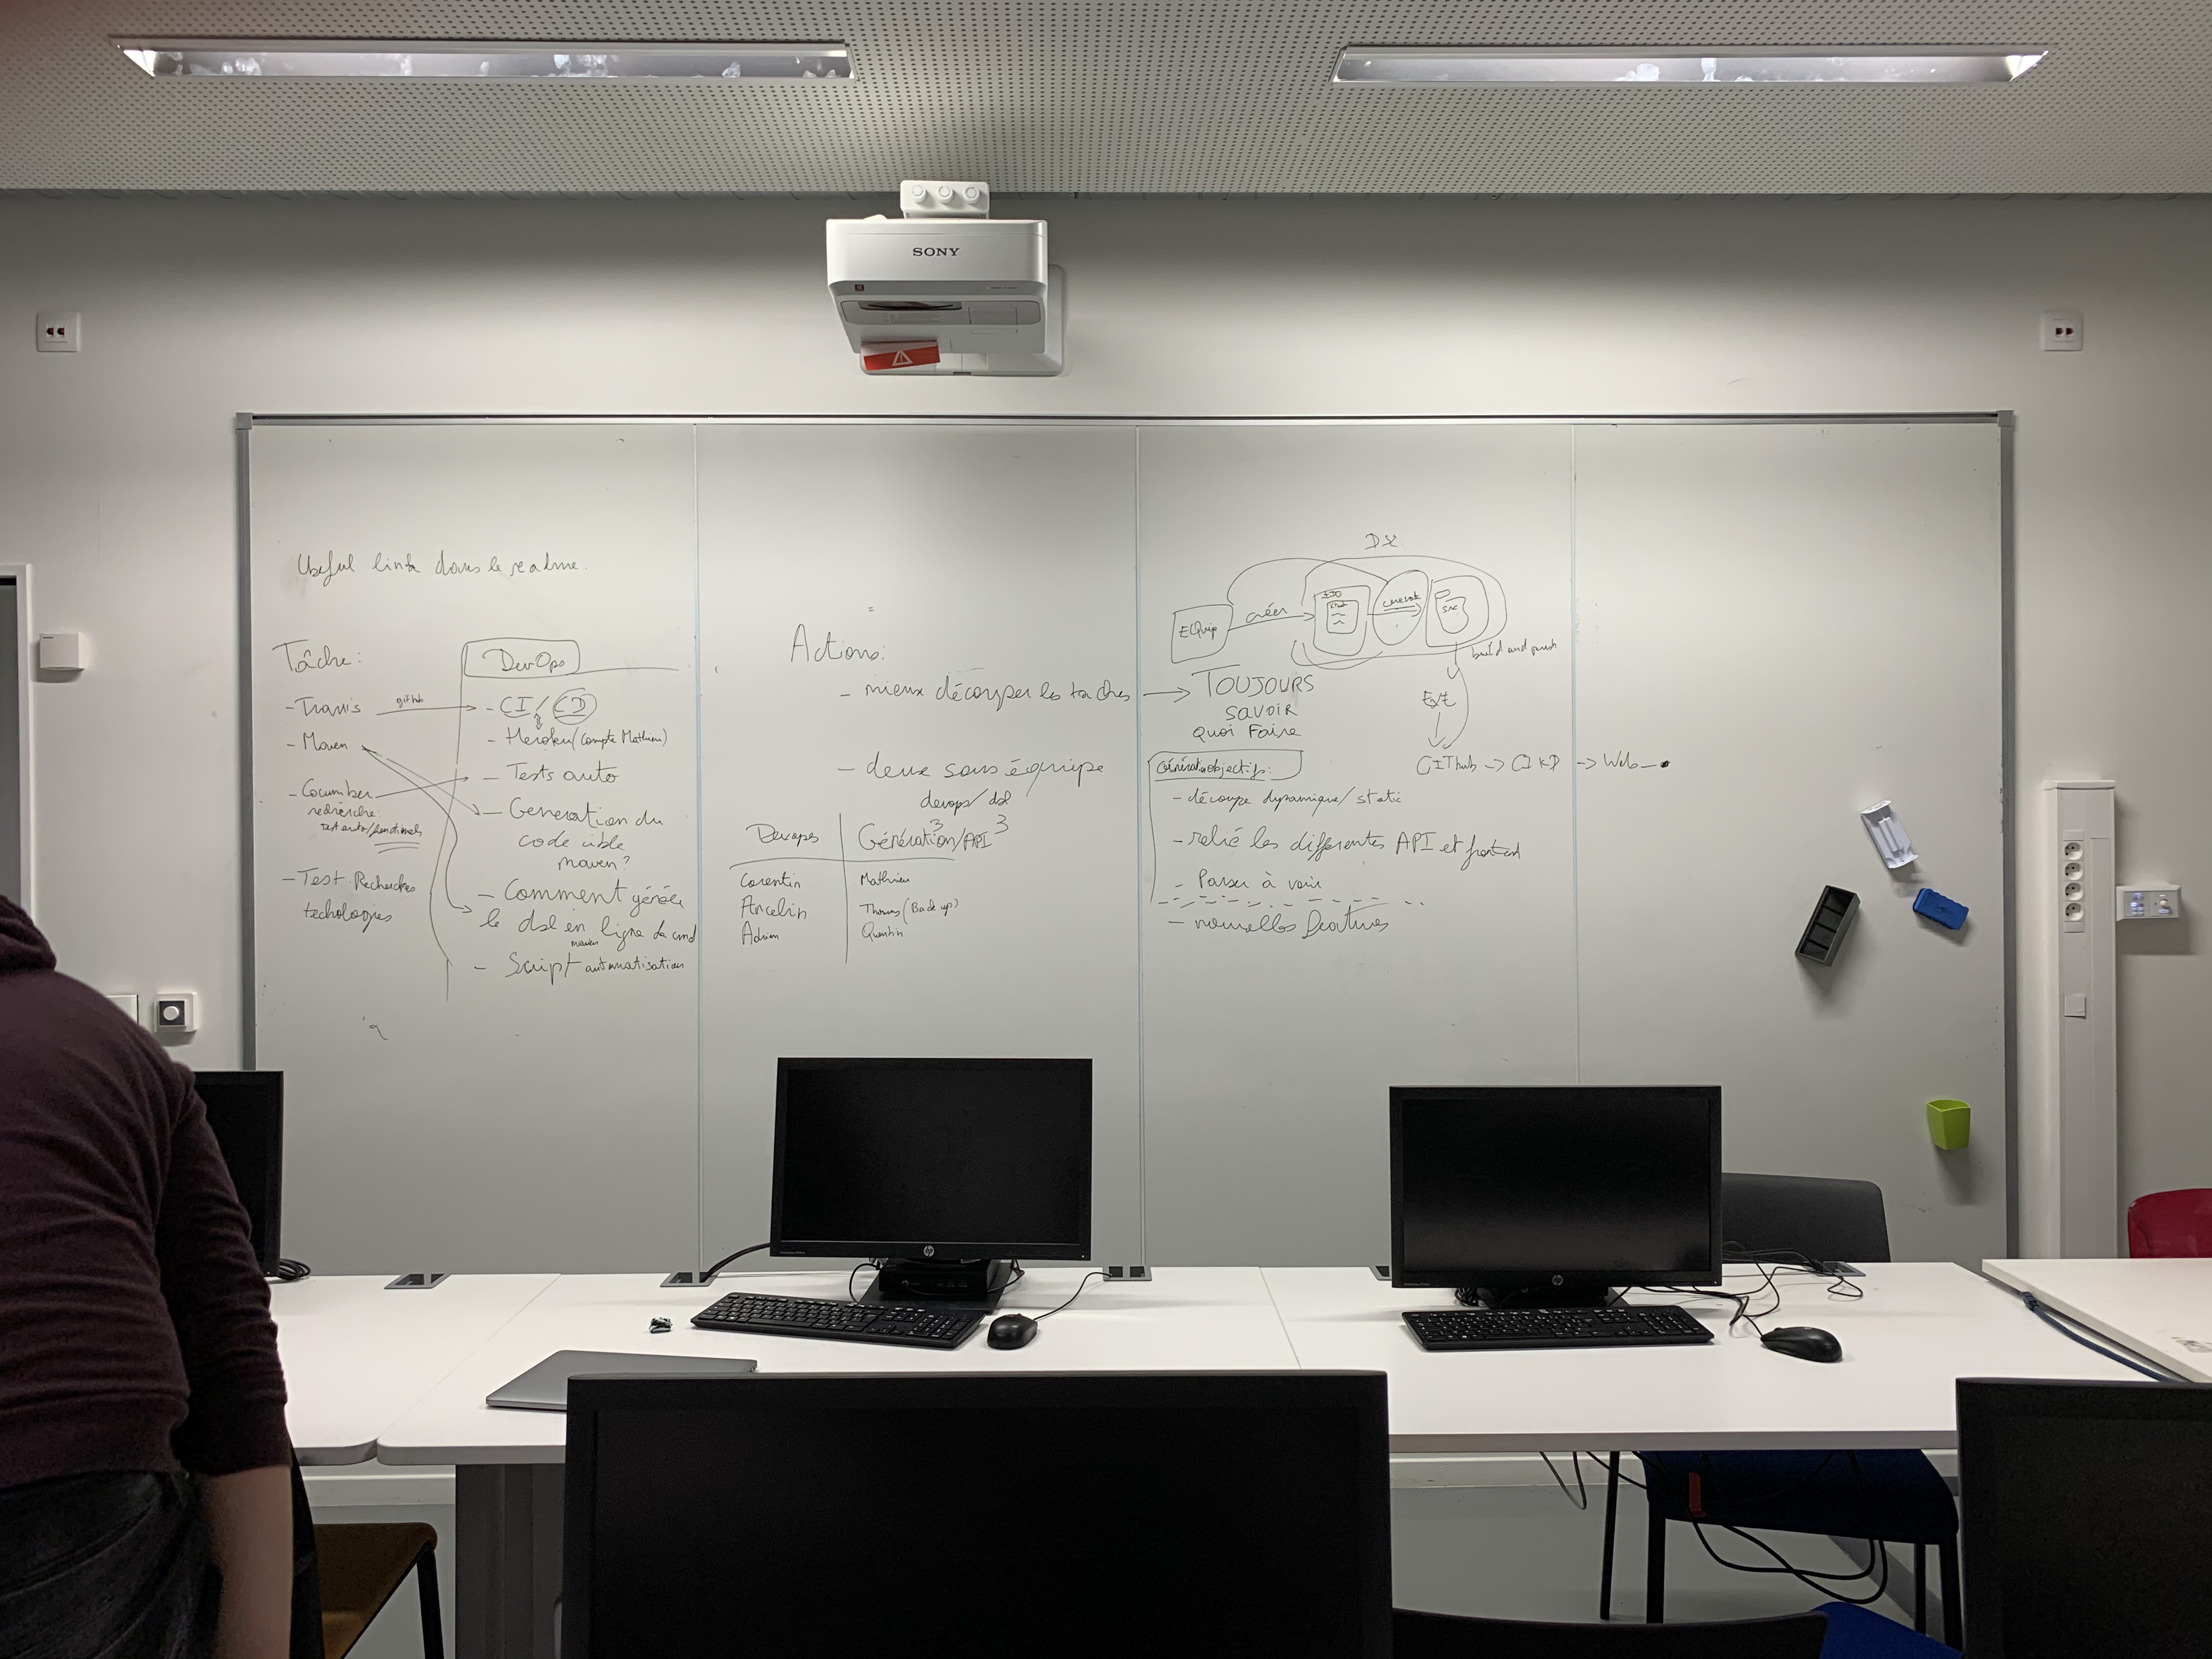 SONY
Useful link dans le readme.
Tâche:
- Travis
github
- Maven
- Cocumber
recherche:
test auto/fonctionels
- Test Recherches
techologies
DevOps
- CI/CD
- Heroku (Compte Mathieu)
- Tests auto
- Generation du
code cible
maven?
- Comment générer
le dsl en ligne de cmd
maven
- Script automatisation
Actions:
- mieux découper les taches
- deux sous équipe
devops/dsl
Devops
Génération/API
3
3
Corentin
Mathieu
Ancelin
Thomas (Back up)
Adrien
Quentin
TOUJOURS
SAVOIR
Quoi Faire
EQuip
créer
src
build and push
GITHub -> CI KD -> Web
objectifs:
- découpe dynamique/static
- relié les differentes API et frontend
- Parser à voir
- nouvelles features
hp
hp